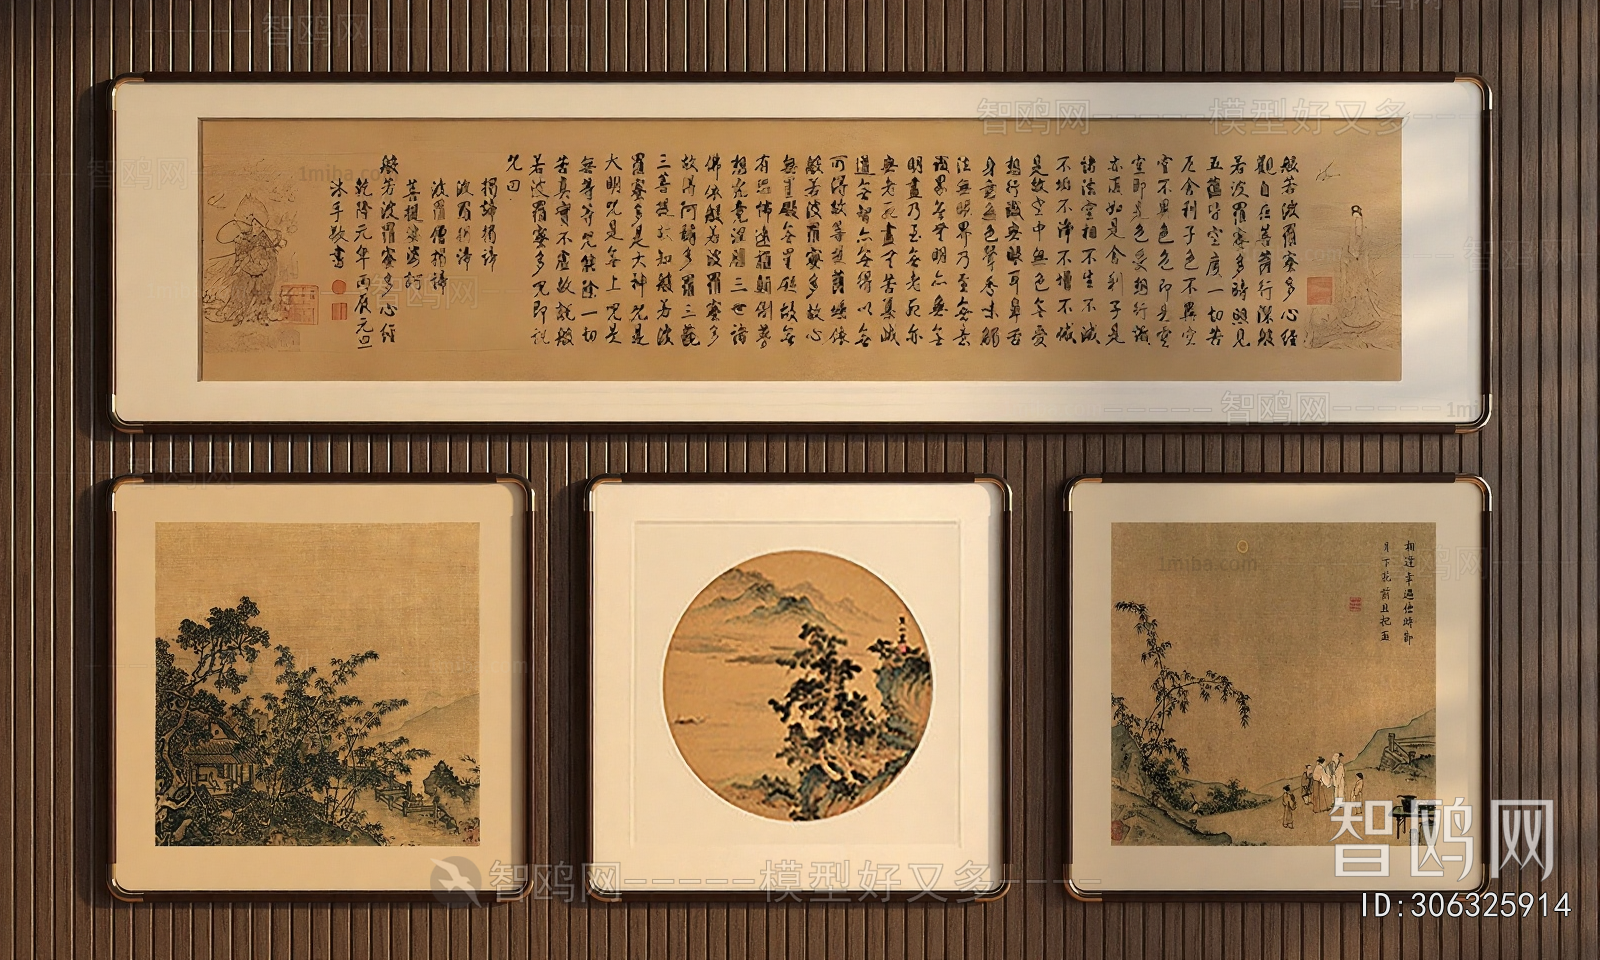 般若波羅蜜多心經
觀自在菩薩行深般
若波羅蜜多時照見
五蘊皆空度一切苦
厄舍利子色不異空
空不異色色即是空
空即是色受想行識
亦復如是舍利子是
諸法空相不生不滅
不垢不淨不增不減
是故空中無色無受
想行識無眼耳鼻舌
身意無色聲香味觸
法無眼界乃至無意
識界無無明亦無無
明盡乃至無老死亦
無老死盡無苦集滅
道無智亦無得以無
所得故菩提薩埵依
般若波羅蜜多故心
無罣礙無罣礙故無
有恐怖遠離顛倒夢
想究竟涅槃三世諸
佛依般若波羅蜜多
故得阿耨多羅三藐
三菩提故知般若波
羅蜜多是大神咒是
大明咒是無上咒是
無等等咒能除一切
苦真實不虛故說般
若波羅蜜多咒即說
咒曰
揭諦揭諦
波羅揭諦
波羅僧揭諦
菩提薩婆訶
般若波羅蜜多心經
乾隆元年丙辰元旦
沐手敬書
相逢幸遇佳時節
月下花前且把盃
智鸥网
模型好又多
1miba.com
智鸥网
ID:306325914